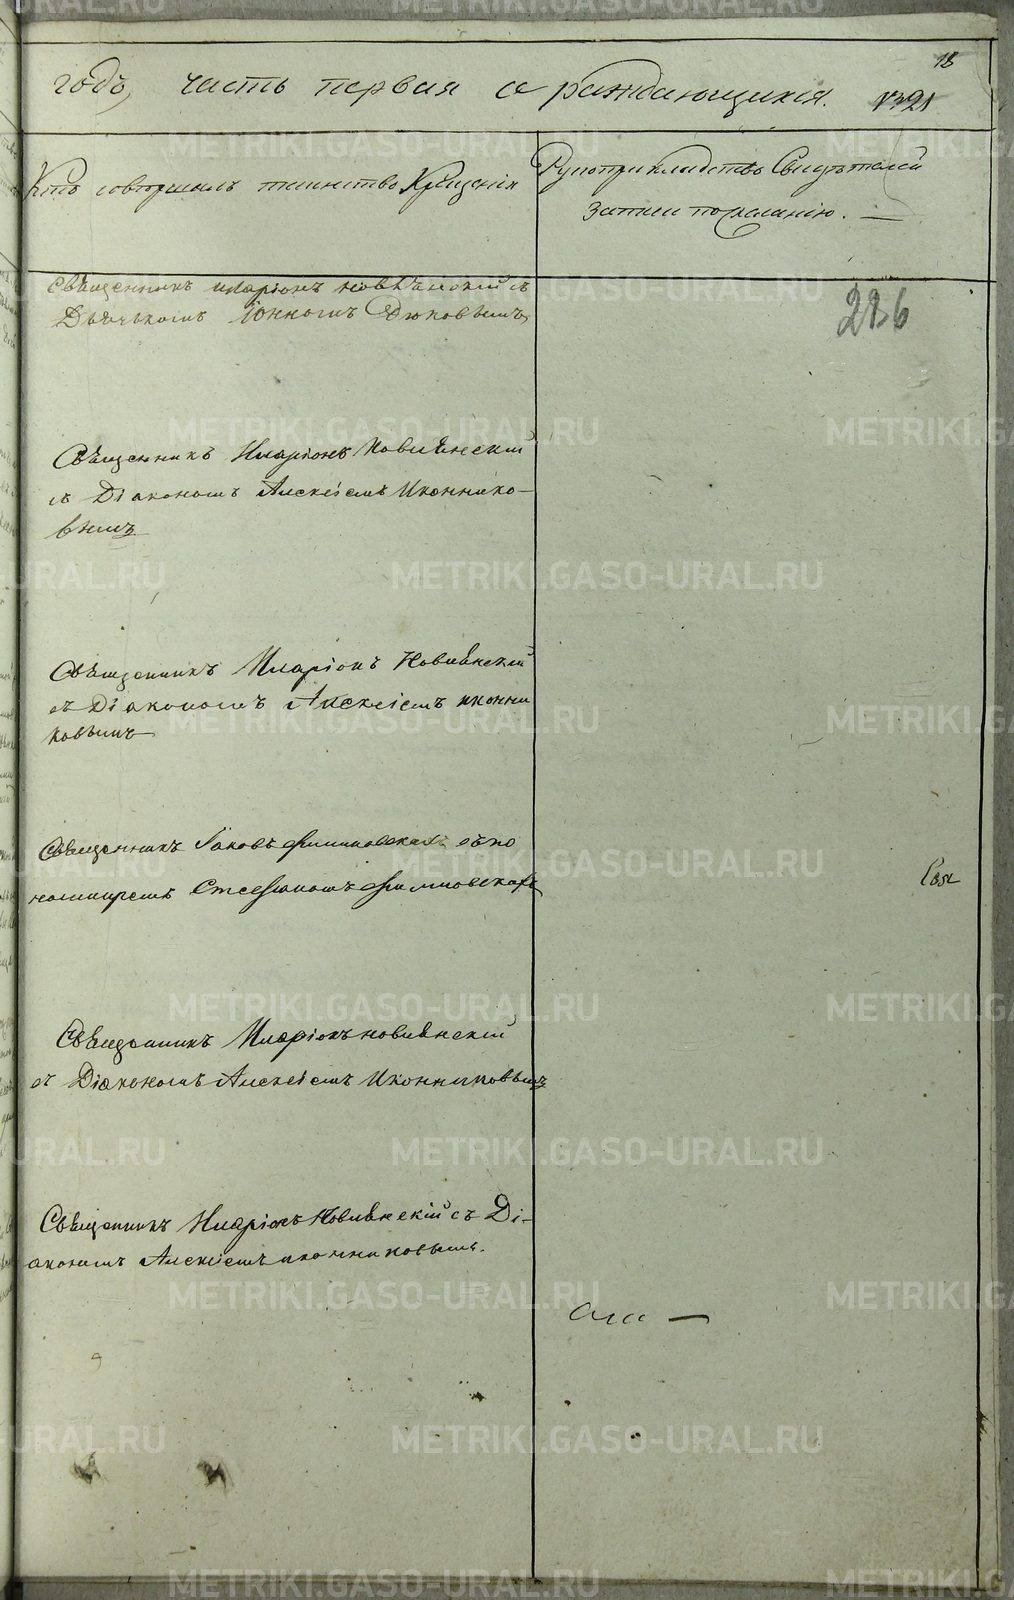 18
годъ, часть первая о раждающихся.
Кто совершалъ таинство Крещенія
Рукоприкладство Свидѣтелей
записи по желанію. —
Свѣщенникъ иларіонъ новиѣнский съ
Дьячькомъ Іонномъ Дюковымъ
236
Свѣщенникъ Иларіонъ Новиѣнский
съ Діакономъ Алексіемъ Иконнико-
вымъ
Свѣщенникъ Иларіонъ Новиѣнский
съ Діакономъ Алексіемъ иконни
ковымъ
Свѣщенникъ Іаковъ съ по
номаремъ Стефаномъ
Свѣщенникъ Иларіонъ новиѣнскій
съ Діакономъ Алексіемъ Иконниковымъ
Свѣщенникъ Иларіонъ Новиѣнскій съ Ді-
акономъ Алексіемъ иконниковымъ.
METRIKI.GASO-URAL.RU